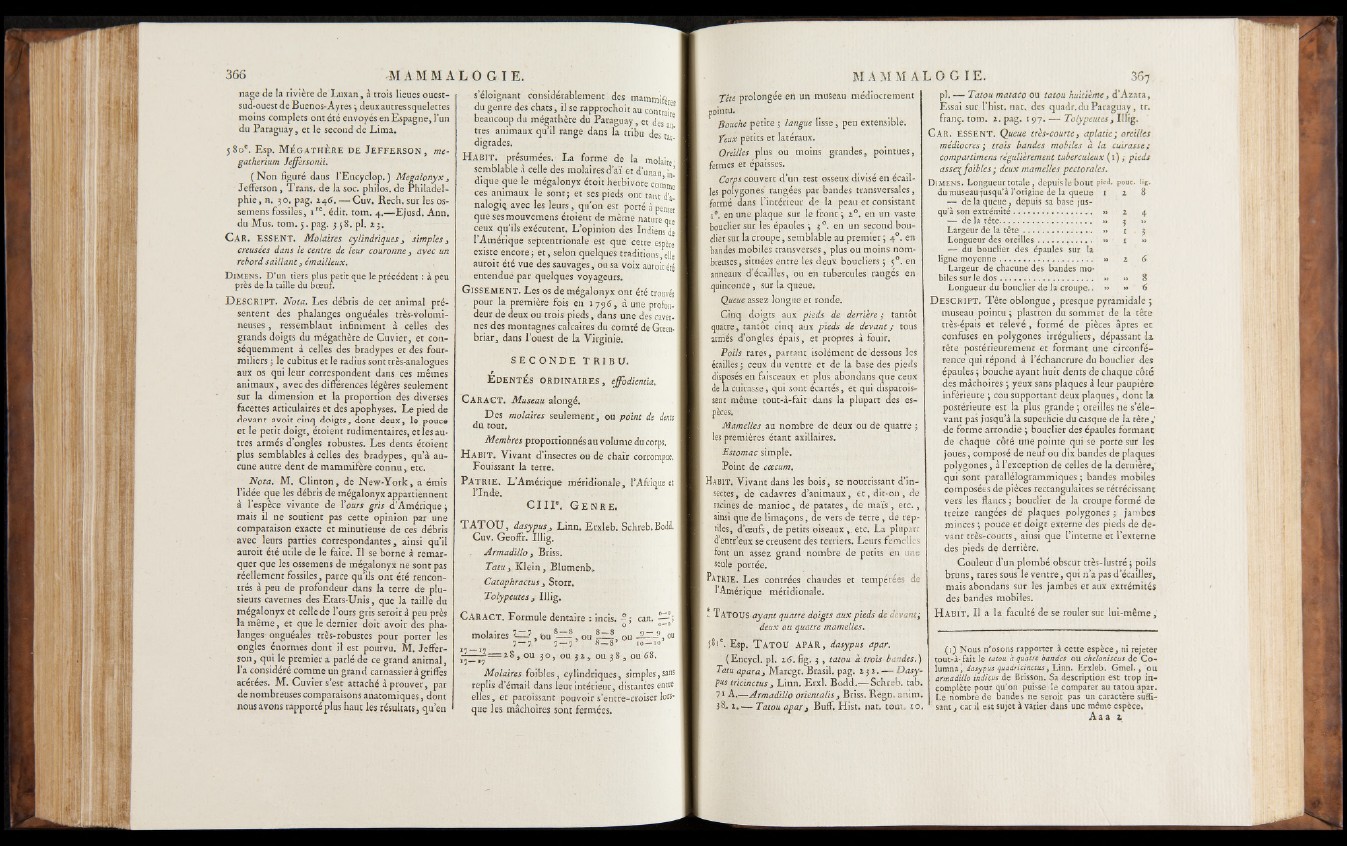 366 MAMMALOGIE.
nage de la rivière de Luxan, à trois lieues ouest-
sud-ouest de Buenos-Ayres; deux autres squelettes
moins complets ont été envoyés en Espagne, l'un
du Paraguay, et le second de Lima.
580e. Esp. MÉGATHÈRE DE JEFFERSON, me-
gatherium Jeffersonii.
(Non figuré dans l'Encyclop.) Megalonyx,
Jefferson, Trans. de la soc. philos. de Philadel-
phie, n. 30, pag. 246. — Cuv. Rech. sur les os-
semens fossiles, 1re. édit. tom. 4.—Ejusd. Ann.
du Mus. tom. 5. pag. 358. pl. 23.
CAR. ESSENT. Molaires cylindriques, simples,
creusées dans le centre de leur couronne, avec un
rebord saillant, émailleux.
DIMENS. D'un tiers plus petit que le précédent : à peu
près de la taille du bœuf.
DESCRIPT. Nota. Les débris de cet animal pré-
sentent des phalanges onguéales très-volumi-
neuses, ressemblant infiniment à celles des
grands doigts du mégathère de Cuvier, et con-
séquemment à celles des bradypes et des four-
miliers; le cubitus et le radius sont très-analogues
aux os qui leur correspondent dans ces mêmes
animaux, avec des différences légères seulement
sur la dimension et la proportion des diverses
facettes articulaires et des apophyses. Le pied de
devant avoit cinq doigts, dont deux, le pouce
et le petit doigt, étoient rudimentaires, et les au-
tres armés d'ongles robustes. Les dents étoient
plus semblables à celles des bradypes, qu'à au-
cune autre dent de mammifère connu, etc.
Nota. M. Clinton, de New-York, a émis
l'idée que les débris de mégalonyx appartiennent
à l'espèce vivante de l'ours gris d'Amérique;
mais il ne soutient pas cette opinion par une
comparaison exacte et minutieuse de ces débris
avec leurs parties correspondantes, ainsi qu'il
auroit été utile de le faire. Il se borne à remar-
quer que les ossemens de mégalonyx ne sont pas
réellement fossiles, parce qu'ils ont été rencon-
trés à peu de profondeur dans la terre de plu-
sieurs cavernes des Etats-Unis, que la taille du
mégalonyx et celle de l'ours gris seroit à peu près
la même, et que le dernier doit avoir des pha-
langes onguéales très-robustes pour porter les
ongles énormes dont il est pourvu. M. Jeffer-
son, qui le premier a parlé de ce grand animal,
l'a considéré comme un grand carnassier à griffes
acérées. M. Cuvier s'est attaché à prouver, par
de nombreuses comparaisons anatomiques, dont
nous avons rapporté plus haut les résultats, qu'en
s'éloignant considérablement des mammifères
du genre des chats, il se rapprochoit au contraire
beaucoup du mégathère du Paraguay, et des au-
tres animaux qu'il range dans la tribu des tar-
digrades.
HABIT. présumées. La forme de la molaire,
semblable à celle des molaires d'aï et d'unau, in-
dique que le mégalonyx étoit herbivore comme
ces animaux le sont; et ses pieds ont tant d'a-
nalogie avec les leurs, qu'on est porté à penser
que ses mouvemens étoient de même nature que
ceux qu'ils exécutent. L'opinion des Indiens de
l'Amérique septentrionale est que cette espèce
existe encore; et, selon quelques traditions, elle
auroit été vue des sauvages, ou sa voix auroit été
entendue par quelques voyageurs.
GISSEMENT. Les os de mégalonyx ont été trouvés
pour la première fois en 1796, à une profon-
deur de deux ou trois pieds, dans une des caver-
nes des montagnes calcaires du comté de Green-
briar, dans l'ouest de la Virginie.
SECONDE TRIBU.
ÉDENTÉS ORDINAIRES, effodientia.
CARACT. Museau alongé.
Des molaires seulement, ou point de dents
du tout.
Membres proportionnés au volume du corps.
HABIT. Vivant d'insectes ou de chair corrompue.
Fouissant la terre.
PATRIE. L'Amérique méridionale, l'Afrique et
l'Inde.
CIIIe. GENRE.
TATOU, dasypus, Linn. Erxleb. Schreb. Bodd.
Cuv. Geoffr. Illig.
Armadillo, Briss.
Tatu, Klein, Blumenb.
Cataphractus, Storr.
Tolypeutes, Illig.
CARACT. Formule dentaire : incis. 0/0; can. 0—0/0—0;
molaires 7—7/7—7, ou 8—8/7—7, ou 8—8/8—8, ou 9—9/10—10, ou
17—17/17—17=28, ou 30, ou 32, ou 38, ou 68.
Molaires foibles, cylindriques, simples, sans
replis d'émail dans leur intérieur, distantes entre
elles, et paroissant pouvoir s'entre-croiser lors-
que les mâchoires sont fermées.
MAMMALOGIE. 367
Tête prolongée en un museau médiocrement
pointu.
Bouche petite; langue lisse, peu extensible.
Yeux petits et latéraux.
Oreilles plus ou moins grandes, pointues,
fermes et épaisses.
Corps couvert d'un test osseux divisé en écail-
les polygones rangées par bandes transversales,
formé dans l'intérieur de la peau et consistant
1°. en une plaque sur le front; 2°. en un vaste
bouclier sur les épaules; 3°. en un second bou-
clier sur la croupe, semblable au premier; 4°. en
bandes mobiles transverses, plus ou moins nom-
breuses, situées entre les deux boucliers; 5°. en
anneaux d'écailles, ou en tubercules rangés en
quinconce, sur la queue.
Queue assez longue et ronde.
Cinq doigts aux pieds de derrière; tantôt
quatre, tantôt cinq aux pieds de devant; tous
armés d'ongles épais, et propres à fouir.
Poils rares, partant isolément de dessous les
écailles; ceux du ventre et de la base des pieds
disposés en faisceaux et plus abondans que ceux
de la cuirasse, qui sont écartés, et qui disparois-
sent même tout-à-fait dans la plupart des es-
pèces.
Mamelles au nombre de deux ou de quatre;
les premières étant axillaires.
Estomac simple.
Point de cœcum.
HABIT. Vivant dans les bois, se nourrissant d'in-
sectes, de cadavres d'animaux, et, dit-on, de
racines de manioc, de patates, de maïs, etc.,
ainsi que de limaçons, de vers de terre, de rep-
tiles, d'œufs, de petits oiseaux, etc. La plupart
d'entr'eux se creusent des terriers. Leurs femelles
font un assez grand nombre de petits en une
seule portée.
PATRIE. Les contrées chaudes et tempérées de
l'Amérique méridionale.
* TATOUS ayant quatre doigts aux pieds de devant;
deux ou quatre mamelles.
581e. Esp. TATOU APAR, dasypus apar.
(Encycl. pl. 26. fig. 3, tatou à trois bandes.)
Tatu apara, Marcgr. Brasil. pag. 232. — Dasy-
pus tricinctus, Linn. Erxl. Bodd.— Schreb. tab.
71 A.—Armadillo orientalis, Briss. Regn. anim.
38. 2.— Tatou apar, Buff. Hist. nat. tom. 10.
pl. — Tatou mataco ou tatou huitième, d'Azara,
Essai sur l'hist. nat. des quadr. du Paraguay, tr.
franç. tom. 2. pag. 197. — Tolypeutes, Illig.
CAR. ESSENT. Queue très-courte, aplatie; oreilles
médiocres; trois bandes mobiles à la cuirasse;
compartimens régulièrement tuberculeux (1); pieds
assez foibles; deux mamelles pectorales.
DIMENS. Longueur totale, depuis le bout pied. pouc. lig.
du museau jusqu'à l'origine de la queue 1 2 8
— de la queue, depuis sa base jus-
qu'à son extrémité................ » 2 4
— de la tête.................. » 3 »
Largeur de la tête............... » 1 3
Longueur des oreilles............ » 1 »
— du bouclier des épaules sur la
ligne moyenne.................... » 2 6
Largeur de chacune des bandes mo-
biles sur le dos................. » » 8
Longueur du bouclier de la croupe.. » » 6
DESCRIPT. Tête oblongue, presque pyramidale;
museau pointu; plastron du sommet de la tête
très-épais et relevé, formé de pièces âpres et
confuses en polygones irréguliers, dépassant la
tête postérieurement et formant une circonfé-
rence qui répond à l'échancrure du bouclier des
épaules; bouche ayant huit dents de chaque côté
des mâchoires; yeux sans plaques à leur paupière
inférieure; cou supportant deux plaques, dont la
postérieure est la plus grande; oreilles ne s'éle-
vant pas jusqu'à la superficie du casque de la tête,
de forme arrondie; bouclier des épaules formant
de chaque côté une pointe qui se porte sur les
joues, composé de neuf ou dix bandes de plaques
polygones, à l'exception de celles de la dernière,
qui sont parallélogrammiques; bandes mobiles
composées de pièces rectangulaires se rétrécissant
vers les flancs; bouclier de la croupe formé de
treize rangées de plaques polygones; jambes
minces; pouce et doigt externe des pieds de de-
vant très-courts, ainsi que l'interne et l'externe
des pieds de derrière.
Couleur d'un plombé obscur très-lustré; poils
bruns, rares sous le ventre, qui n'a pas d'écailles,
mais abondans sur les jambes et aux extrémités
des bandes mobiles.
HABIT. Il a la faculté de se rouler sur lui-même,
(1) Nous n'osons rapporter à cette espèce, ni rejeter
tout-à-fait le tatou à quatre bandes ou cheloniscus de Co-
lumna, dasypus quadricinctus, Linn. Erxleb. Gmel., ou
armadillo indicus de Brisson. Sa description est trop in-
complète pour qu'on puisse le comparer au tatou apar.
Le nombre de bandes ne seroit pas un caractère suffi-
sant, car il est sujet à varier dans une même espèce.
Aaa 2